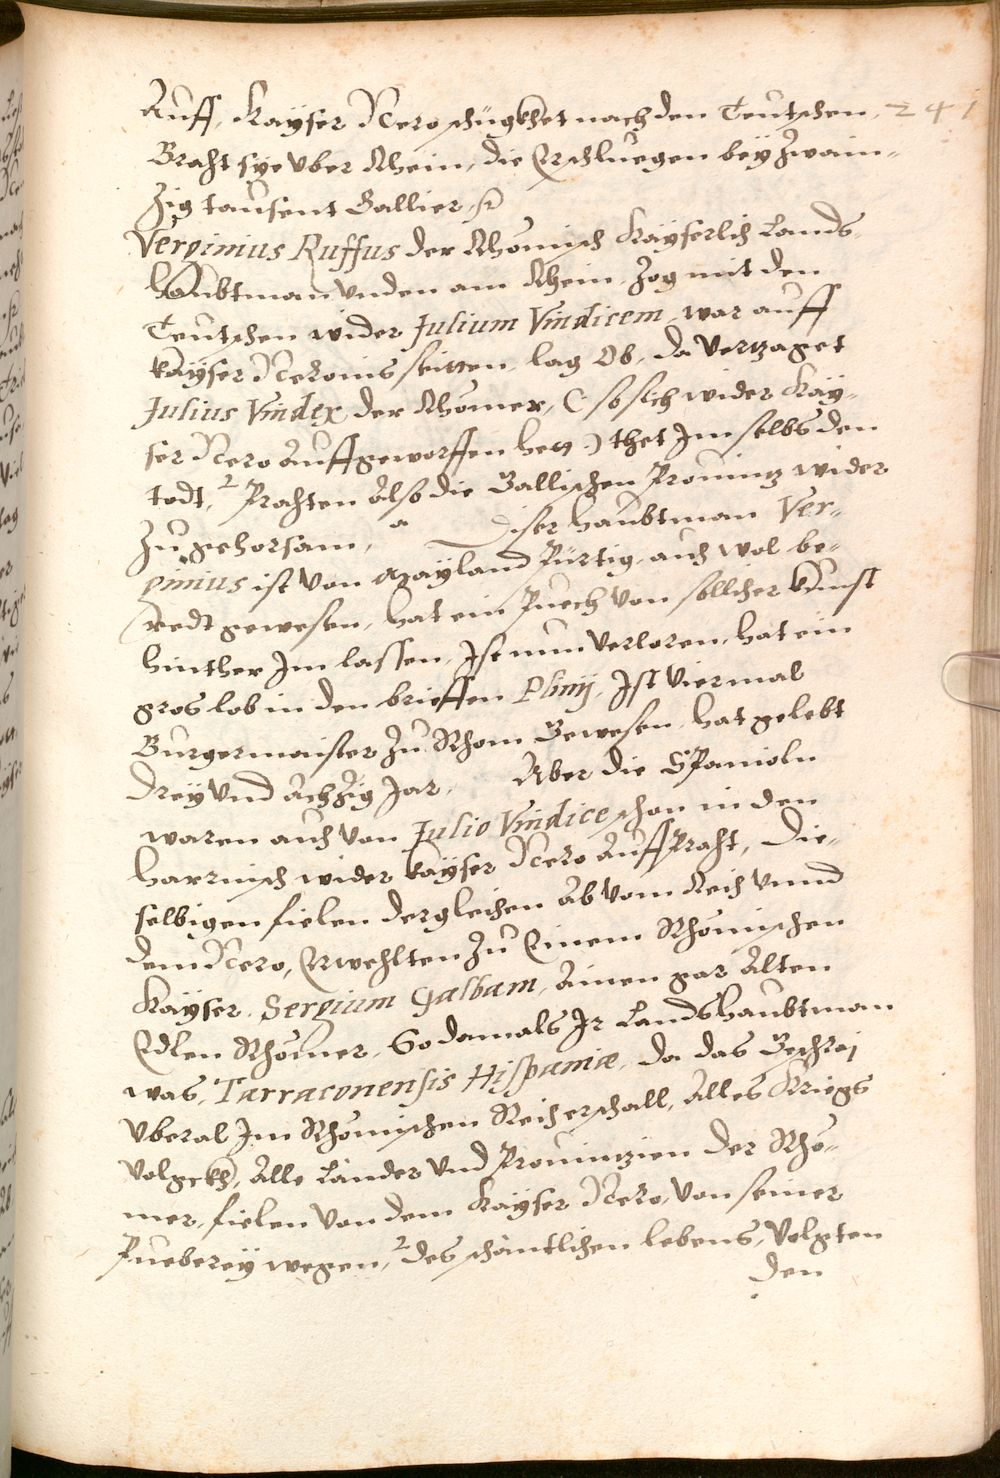 Auff, Kayser Nero schigkhet nach den Teutschen, 241
Bracht sye uber Rhein, die Erschluegen bey Zwain-
Zig tausent Gallier. etc.
Verginius Ruffus der Rhömisch Kayserlich Lands
haubtman unden am Rhein, Zog mit den
Teutschen wider Julium Vindicem, war auff
kayser Neronis seitten, lag Ob, da Vertzaget
Julius Vindex, der Rhömer, (so sich wider Kay-
ser Nero Auffgeworffen hett) thet Im selbs den
todt, Prachten Also die Gallischen Prouintz wider
Zu gehorsam, Diser haubtman Ver-
ginius ist von Mayland Pürtig, auch wol be-
redt gewesen, hat ein Puech von sollicher kunst
hinther Im lassen, Ist nun verloren, hat ein
gros lob in den brieffen Plinij, Ist Viermal
Burgermaister Zu Rhom Gewesen, hat gelebt
Drey und Achzig Jar, Aber die Spanioln
waren auch von Julio Vindice schon in den
harnisch wider kayser Nero Auffpracht, Die-
selbigen fielen dergleichen Ab vom Reich unnd
dem Nero, Erwehlten Zu Einem Rhömischen
Kayser, Sergium Galbam, Ainen gar Alten
Edlen Rhömer, So damals Ir Landshaubtman
was, Tarraconensis Hispaniæ, Da das Geschraj
Uberal Im Rhömischen Reich erschall, Alles Kriegs
Volgckh, Alle Länder und Prouintzien der Rhö-
mer, fielen von dem Kayser Nero, Von seiner
Pueberey wegen, des schantlichen lebens, Volgten
Den